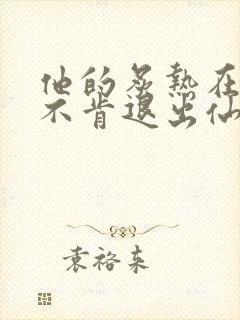 他的炙热在
不肯退出仙
袁裕来